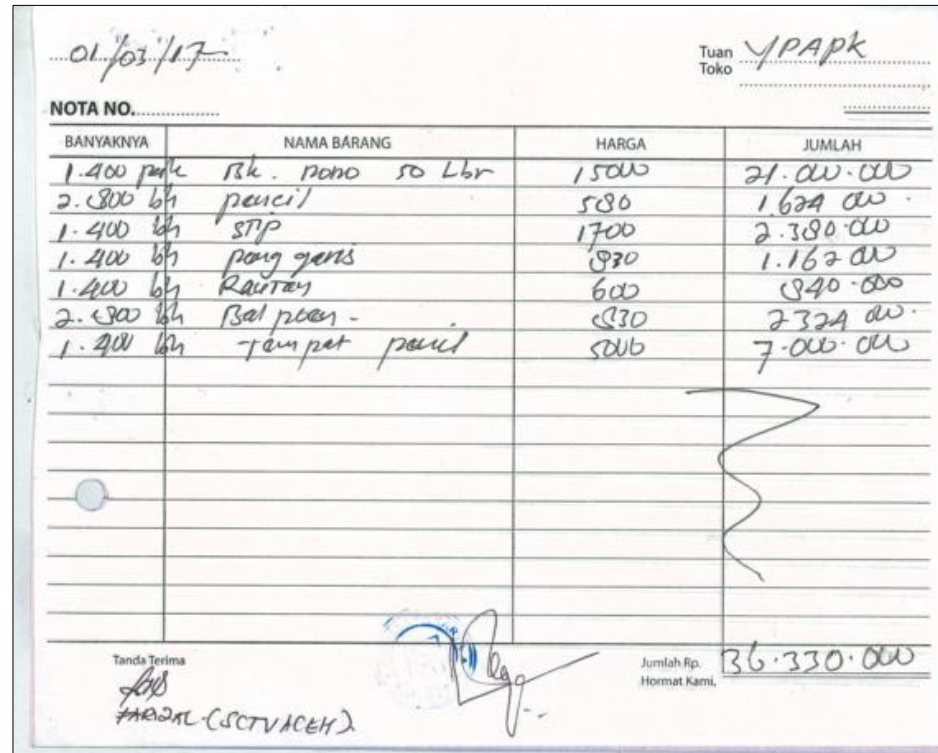 01/03/17
Tuan YPAPK
Toko
NOTA NO.
BANYAKNYA NAMA BARANG HARGA JUMLAH
1.400 pak Bk. nono 50 Lbr 15000 21.000.000
2.800 bh pencil 580 1.624 000
1.400 bh STIP 1700 2.380.000
1.400 bh peng garis 830 1.162 000
1.400 bh Rautan 600 840.000
2.800 bh Bal poen - 830 2324 000.
1.400 bh Tempat pencil 5000 7.000.000
Tanda Terima Jumlah Rp. 36.330.000
Hormat Kami,
FARIZAL (SCTV ACEH)